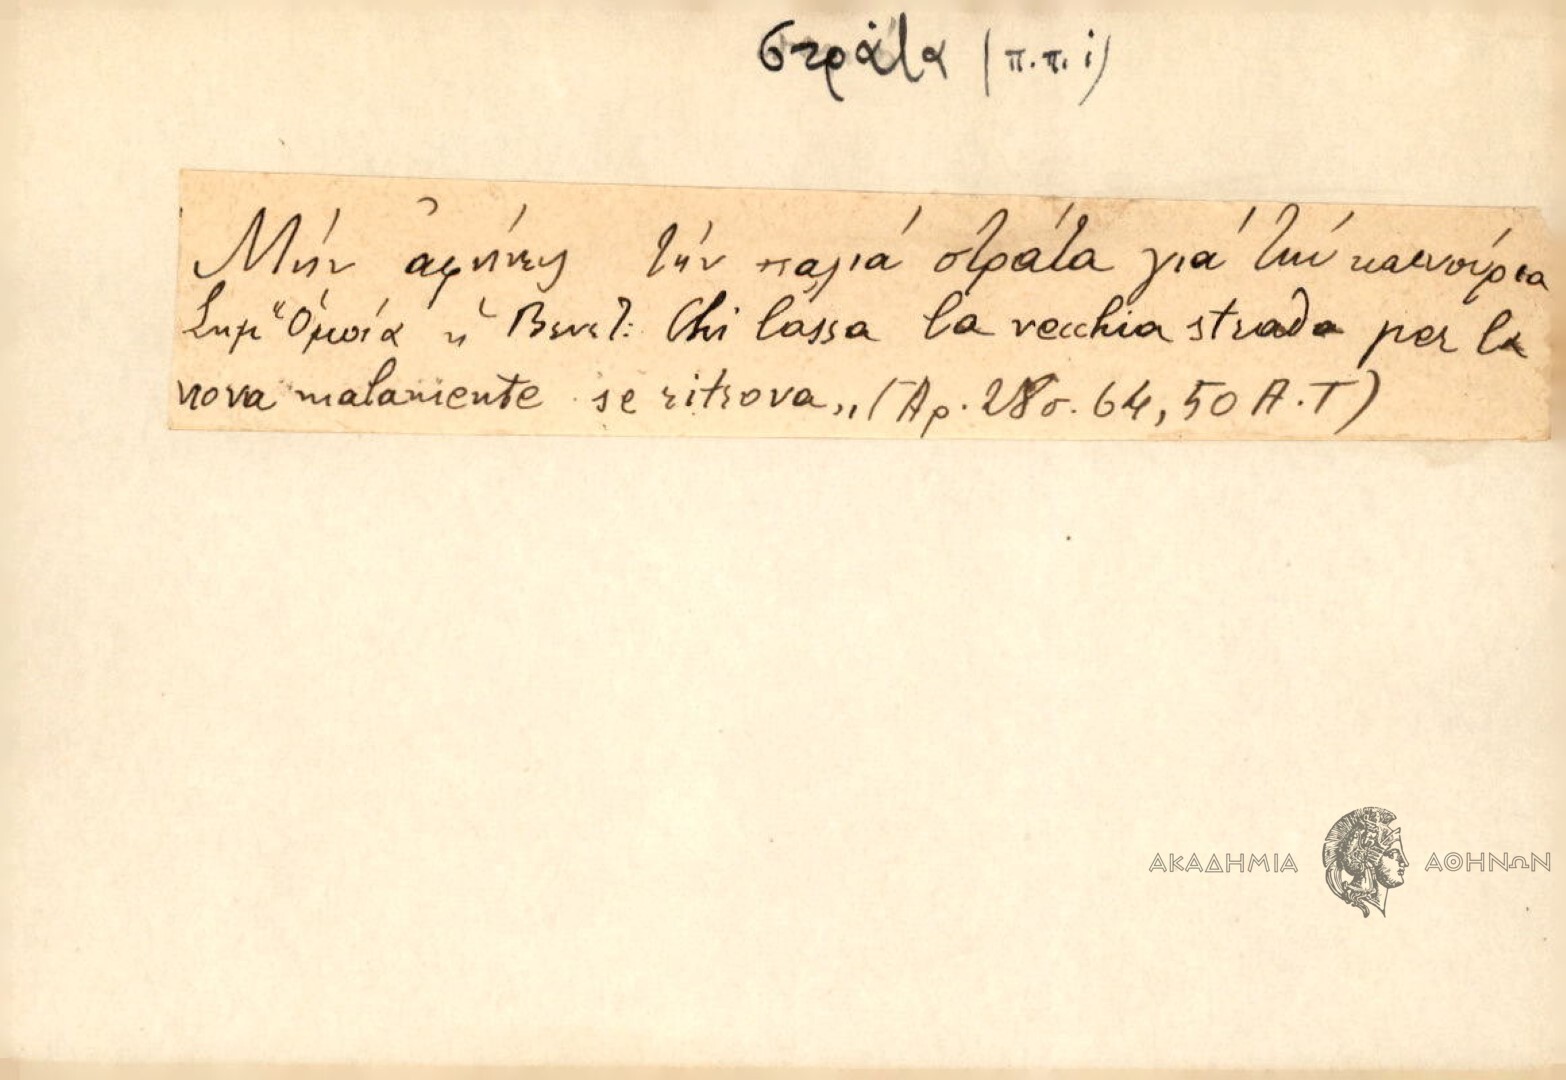 στράτα (π.π. i)
Μήν ἀφήνεις τήν παλιά στράτα γιά τήν καινούρια
Σημ "Ὁμοία ἡ Βενετ: Chi lassa la vecchia strada per la
nova malamente se ritrova„ (Ἀρ. 28 σ. 64, 50 Α.Τ)
ΑΚΑΔΗΜΙΑ ΑΘΗΝΩΝ